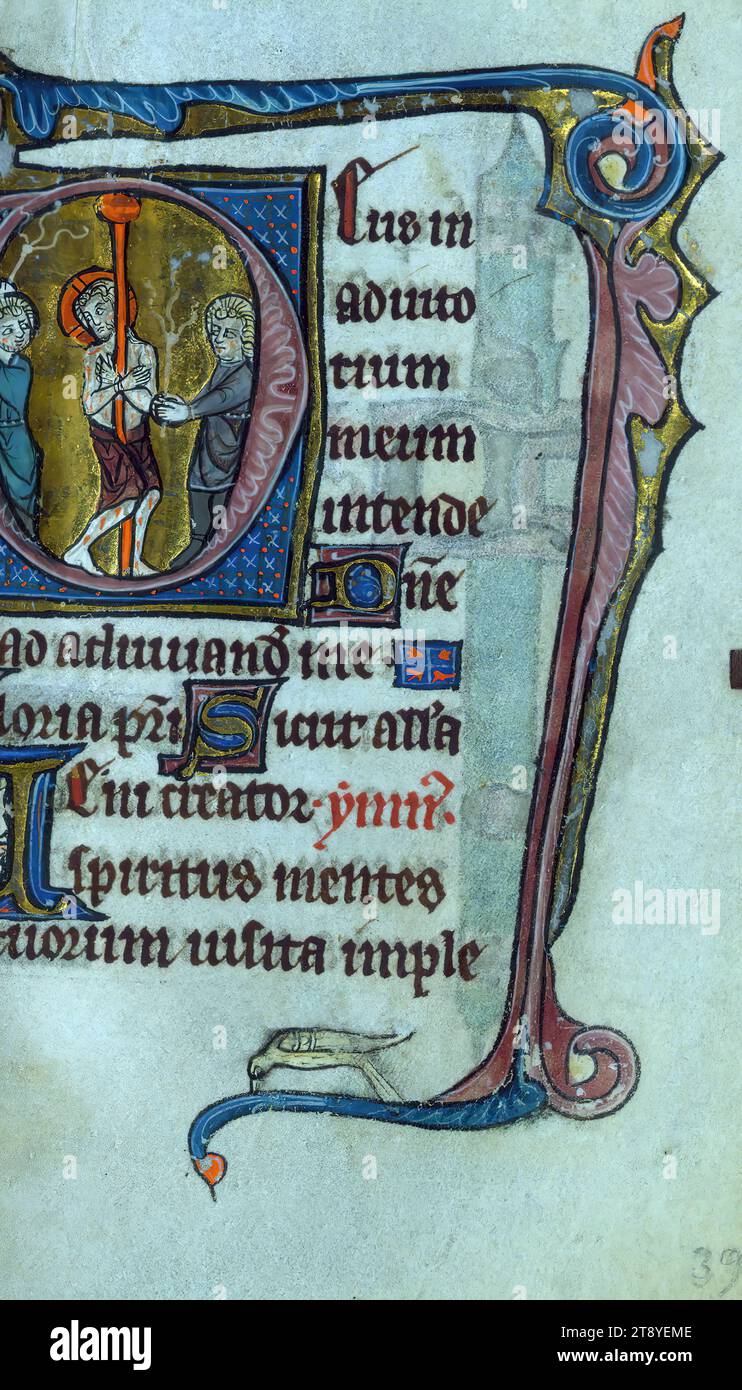 eus in
adiuto
rium
meum
intende
Dñe
ad adiuuand̄ me
loria pr̄i Sicut all'a
Eni creator · ymn̄.
spiritus mentes
tuorum uisita imple
39
alamy
Image ID: 2T8YEME
www.alamy.com